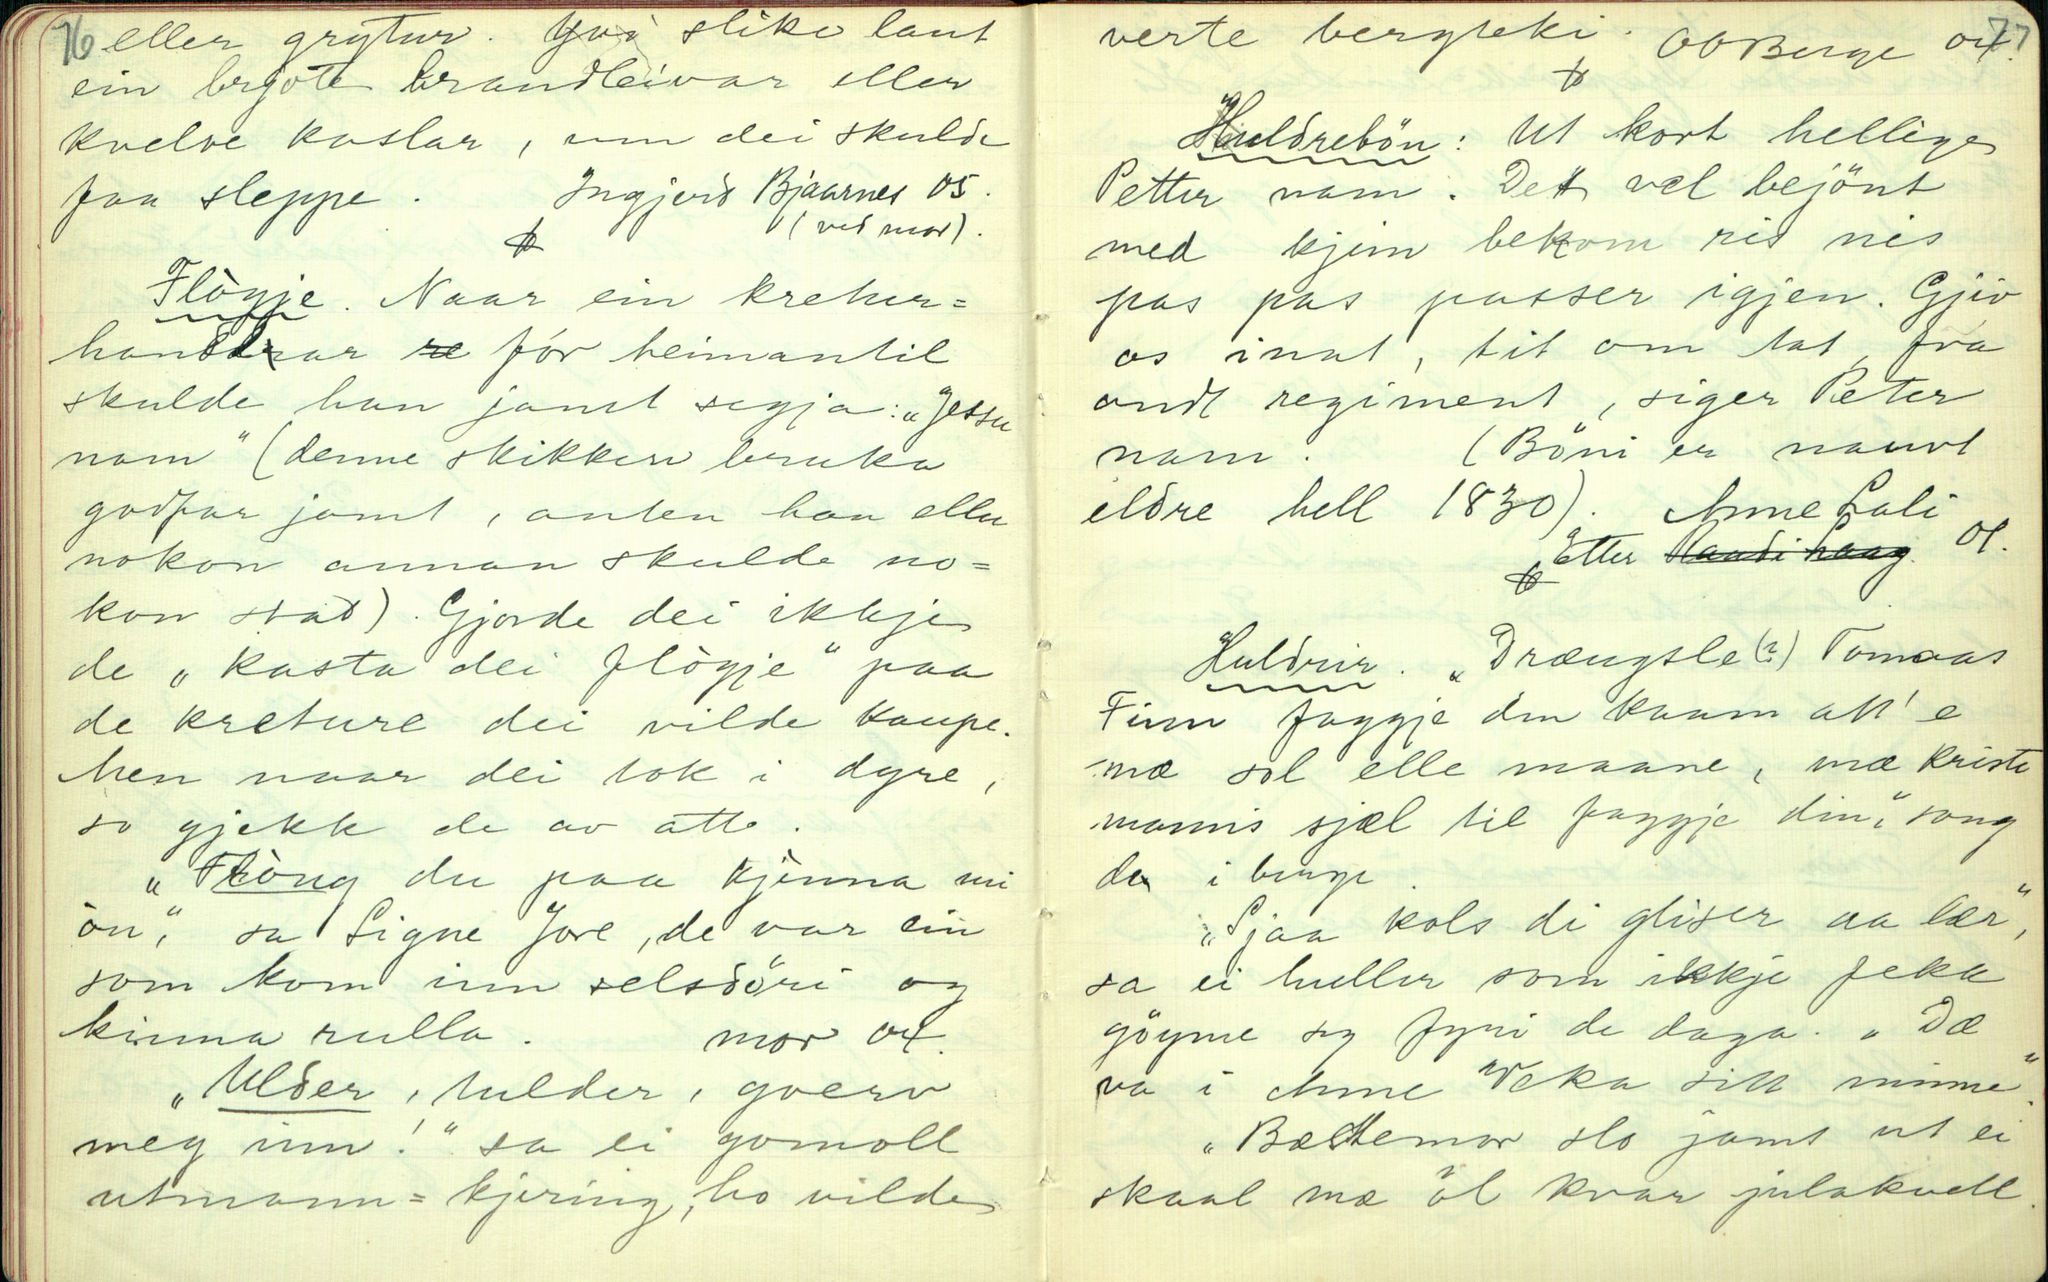 76
eller grytur. Yvi slike laut
ein brjote brandleivar eller
kvelve kaslar, um dei skulde
faa sleppe. Ingjerd Bjaarnes 05.
(ved mor).
Flògje. Naar ein kretur=
handlar re fór heimantil
skulde han jamt segja: „Jessu
nam" (denne skikken bruka
godfar jamt, anten han eller
nokon annan skulde no=
kon stad). Gjorde dei ikkje
de „kasta dei flògje" paa
de kreture dei vilde kaupe.
Men naar dei tok i dyre,
so gjekk de av atte.
„Flòng du paa kjènna mi
òn", sa Signe Jore, de var ein
som kom inn selsdöri og
kinna rulla. mor 04.
„Ulder, hulder, gverv
meg inn!" sa ei gomoll
utmann=kjering, ho vilde
77
verte bergteki. OOBerge 04.
Huldrebön: Ut kort hellige
Petter nam. Det vel bejönt
med kjim bekom ris nis
pas pas passer igjen. Gjiv
os inat, tit om tat, fra
ondt regiment, siger Peter
nam. (Böni er nauvt
eldre hell 1830). Anne Lali
Etter 01.
Huldrir. „Drængsle (?) Tomaas
Finn faggje din kaam att' e
mæ sol elle maane, mæ kriste
mannis sjæl til faggje din", song
de i berge.
„Sjaa kols di gliser aa lær",
sa ei huller som ikkje feka
göyme seg fyri de daga. „Dæ
va i Anne Veka sitt minne."
„Bæstemor slo jamt ut ei
skaal mæ öl kvar julakvell.